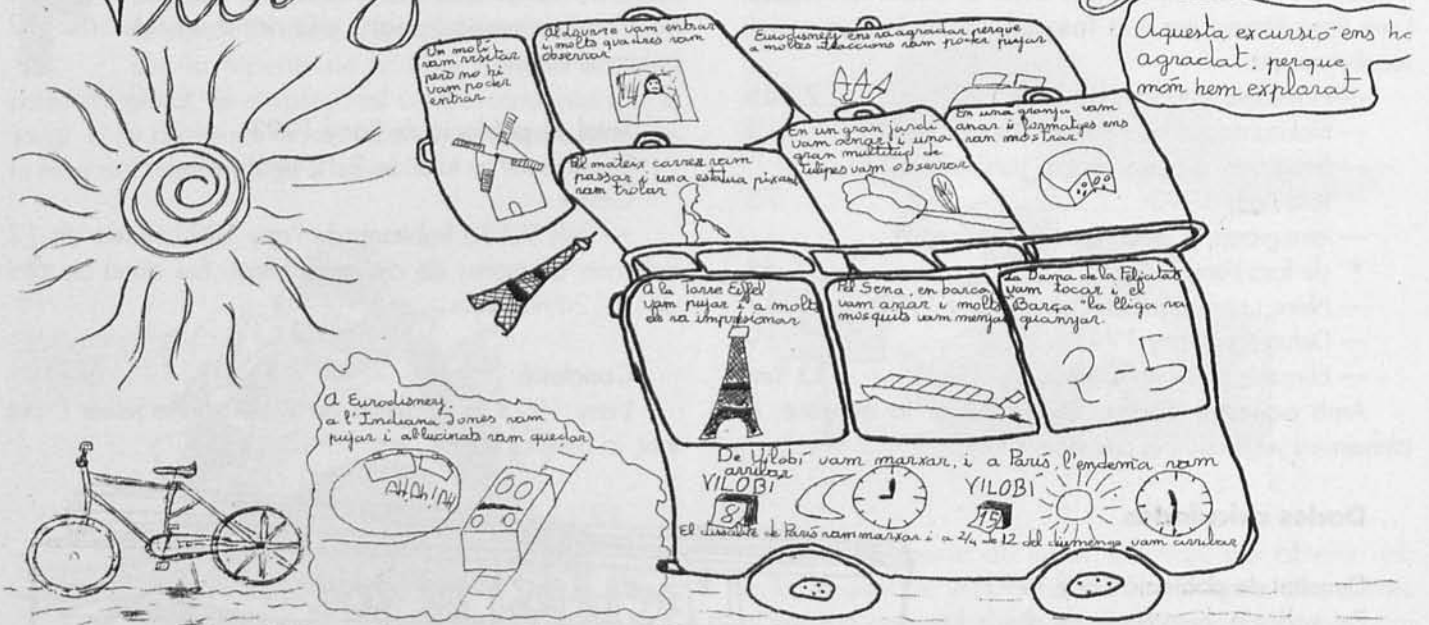 Un molí
vam visitar
però no hi
vam poder
entrar
Al Louvre vam entrar
i molts quadres vam
observar
Eurodisney ens va agradar perquè
a moltes atraccions vam poder pujar
Aquesta excursió ens ha
agradat perquè
món hem explorat
Pel mateix carrer vam
passar i una estatua pixant
vam trobar
En un gran jardí
vam anar i una
gran multitud de
tulipes vam observar
En una granja vam
anar i formatjes ens
van mostrar
A la Torre Eiffel
vam pujar i a molts
els va impresionar
Pel Sena, en barca
vam anar i molts
mosquits vam menjar
La Dama de la Felicitat
vam tocar i el
Barça la lliga va
guanyar.
A Eurodisney
a l'Indiana Jones vam
pujar i al·lucinats vam quedar
AH, Ah! AH
De Vilobí vam marxar, i a París, l'endemà vam
arribar
VILOBÍ
8
VILOBÍ
15
El dissabte de París vam marxar i a 2/4 de 12 del diumenge vam arribar